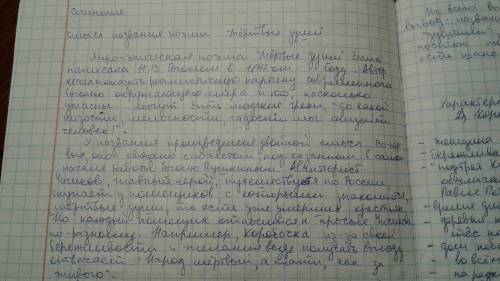 Сочинение
Смысл названия поэмы "Мёртвые души"
Лиро-эпическая поэма "Мёртвые души" была
написана Н.В. Гоголем в 1842-ом году. Автор
хотел показать реалистическую картину современного
Гоголю окружающего мира и то, насколько
ужасны могут быть людские грехи, "до какой
низости, мелочности, гадости мог снизойти
человек!".
У названия произведения двойной смысл. Во-пер
вых, оно связано с сюжетом, подсказанным в самом
начале работы Гоголю Пушкиным. Авантюрист
Чичиков, главный герой, путешествует по России,
скупает у помещиков, с которыми знакомится,
мёртвые души, то есть уже умерших крестьян.
Но каждый помещик относится к просьбе Чичикова
по-разному. Например, Коробочка из-за своей
бережливости и желания везде получать выгоду
отвечает: "Народ мёртвый, а плати, как за
живого".
Из всего
вывод: назва
"Шкупщики"
посвятил
есть
Характер
2) Коро
- женщина
- бережлива
- портрет
Павел
- время дня
- деревья
- дом небо
- во всём
- на ред